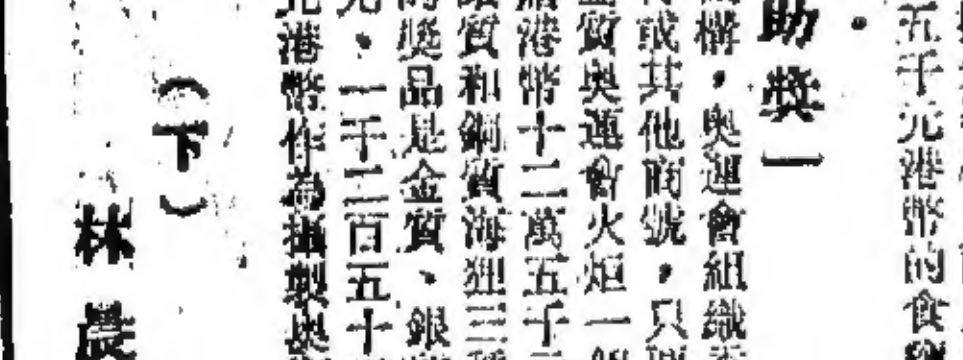 五千元港幣的食
助獎一
構，奧運會組織
或其他商號，只
質奧運會火炬一
港幣十二萬五千
質和銅質海狸三種
獎品是金質、銀
、一千三百五十
港幣作為攝製奧
（下）
林農